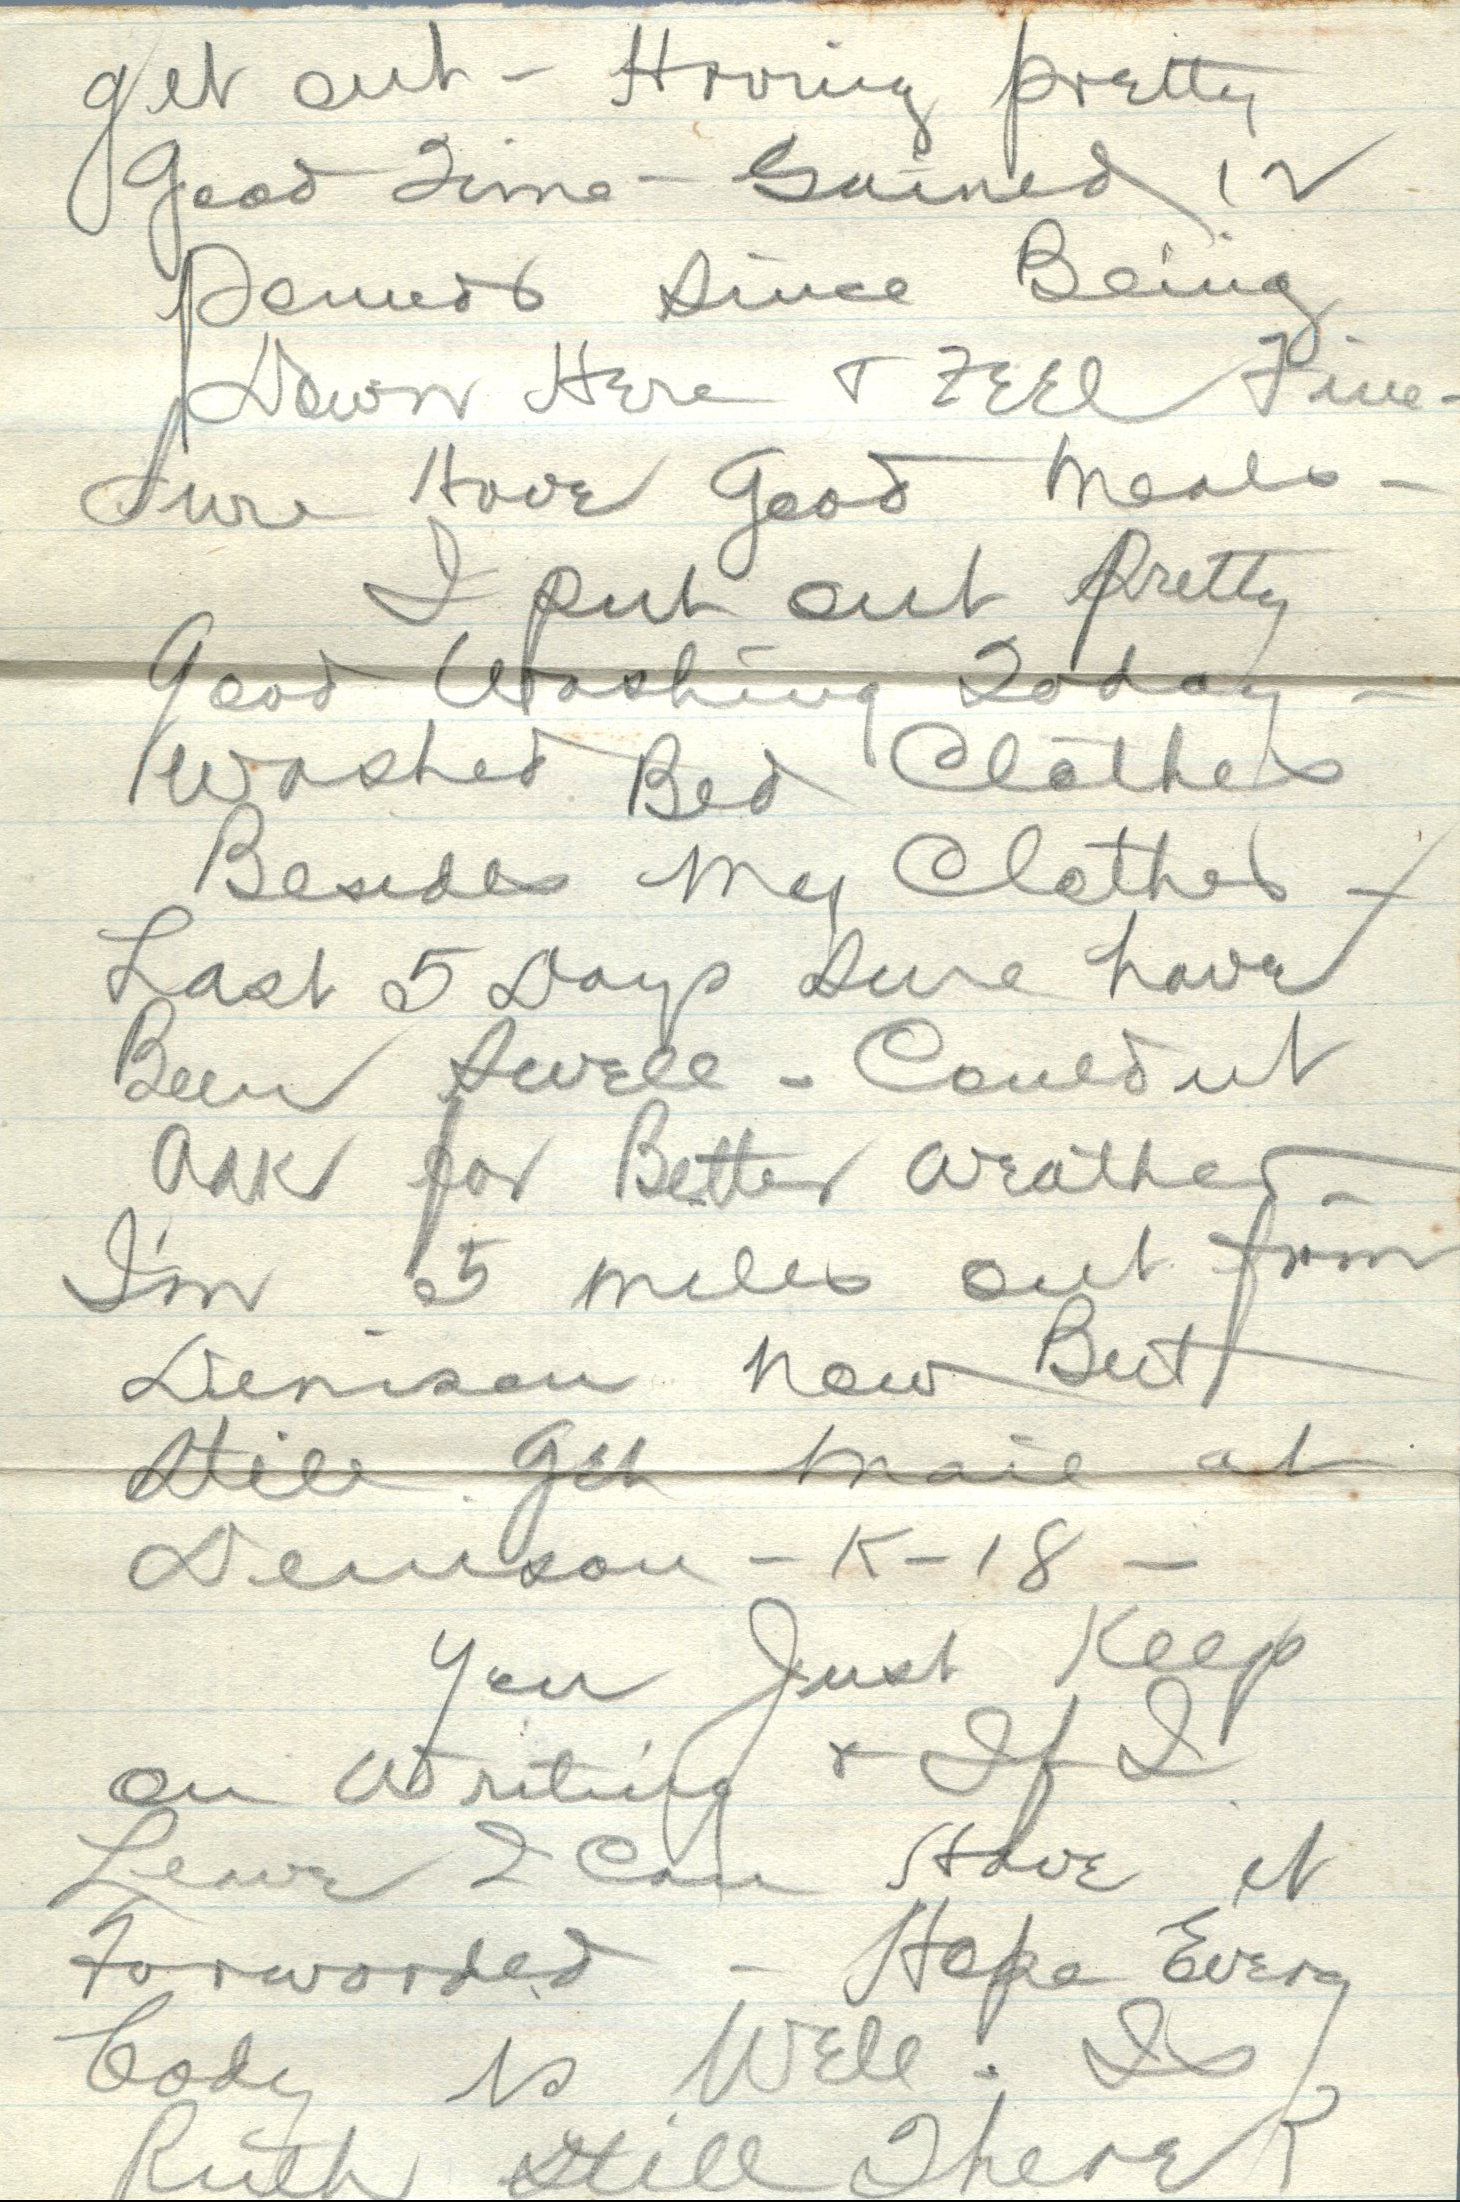 get out - Having pretty
Good Time - Gained 12
Pounds Since Being
Down Here & FEEl Fine -
Sure Have Good Meals -
I put out Pretty
Good Washing Today -
Washed Bed Clothes
Besides My Clothes -
Last 5 Days Sure have
Been Swell - Couldnt
Ask for Better Weather -
I'm 5 miles out from
Denison Now But
Still Get Mail at
Denison - K-18 -
You Just Keep
on Writing & If I
Leave I Can Have it
Forwarded - Hope Every
body is Well. Is
Ruth Still There?